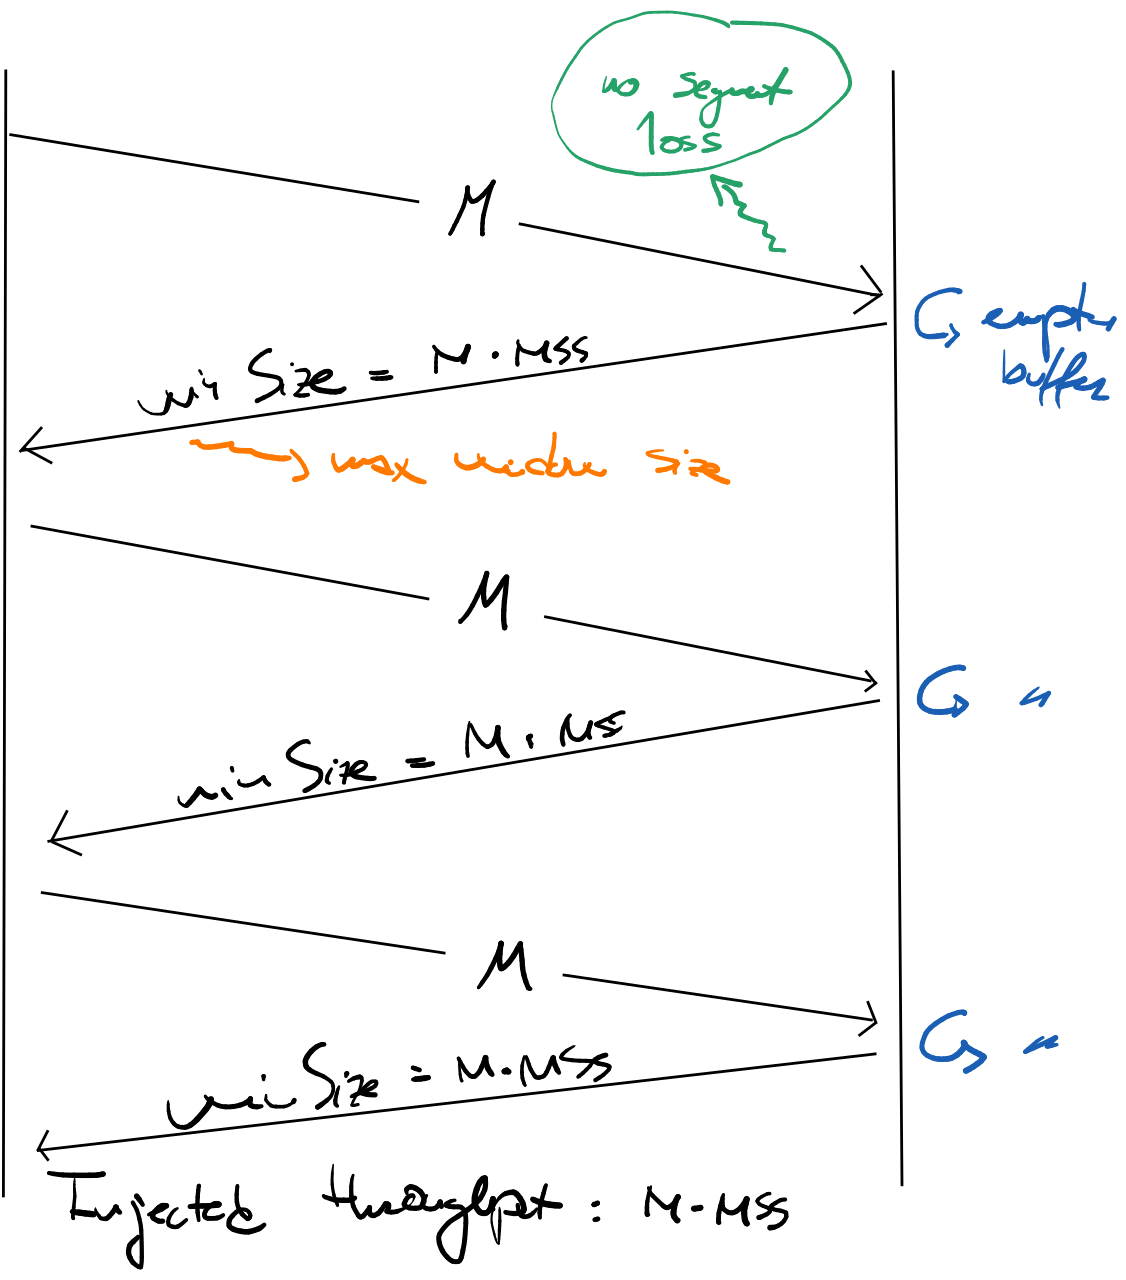 no segment
loss
M
empty
buffer
win Size = M · MSS
max window size
M
"
win Size = M · MS
M
"
win Size = M · MSS
Injected throughput : M · MSS